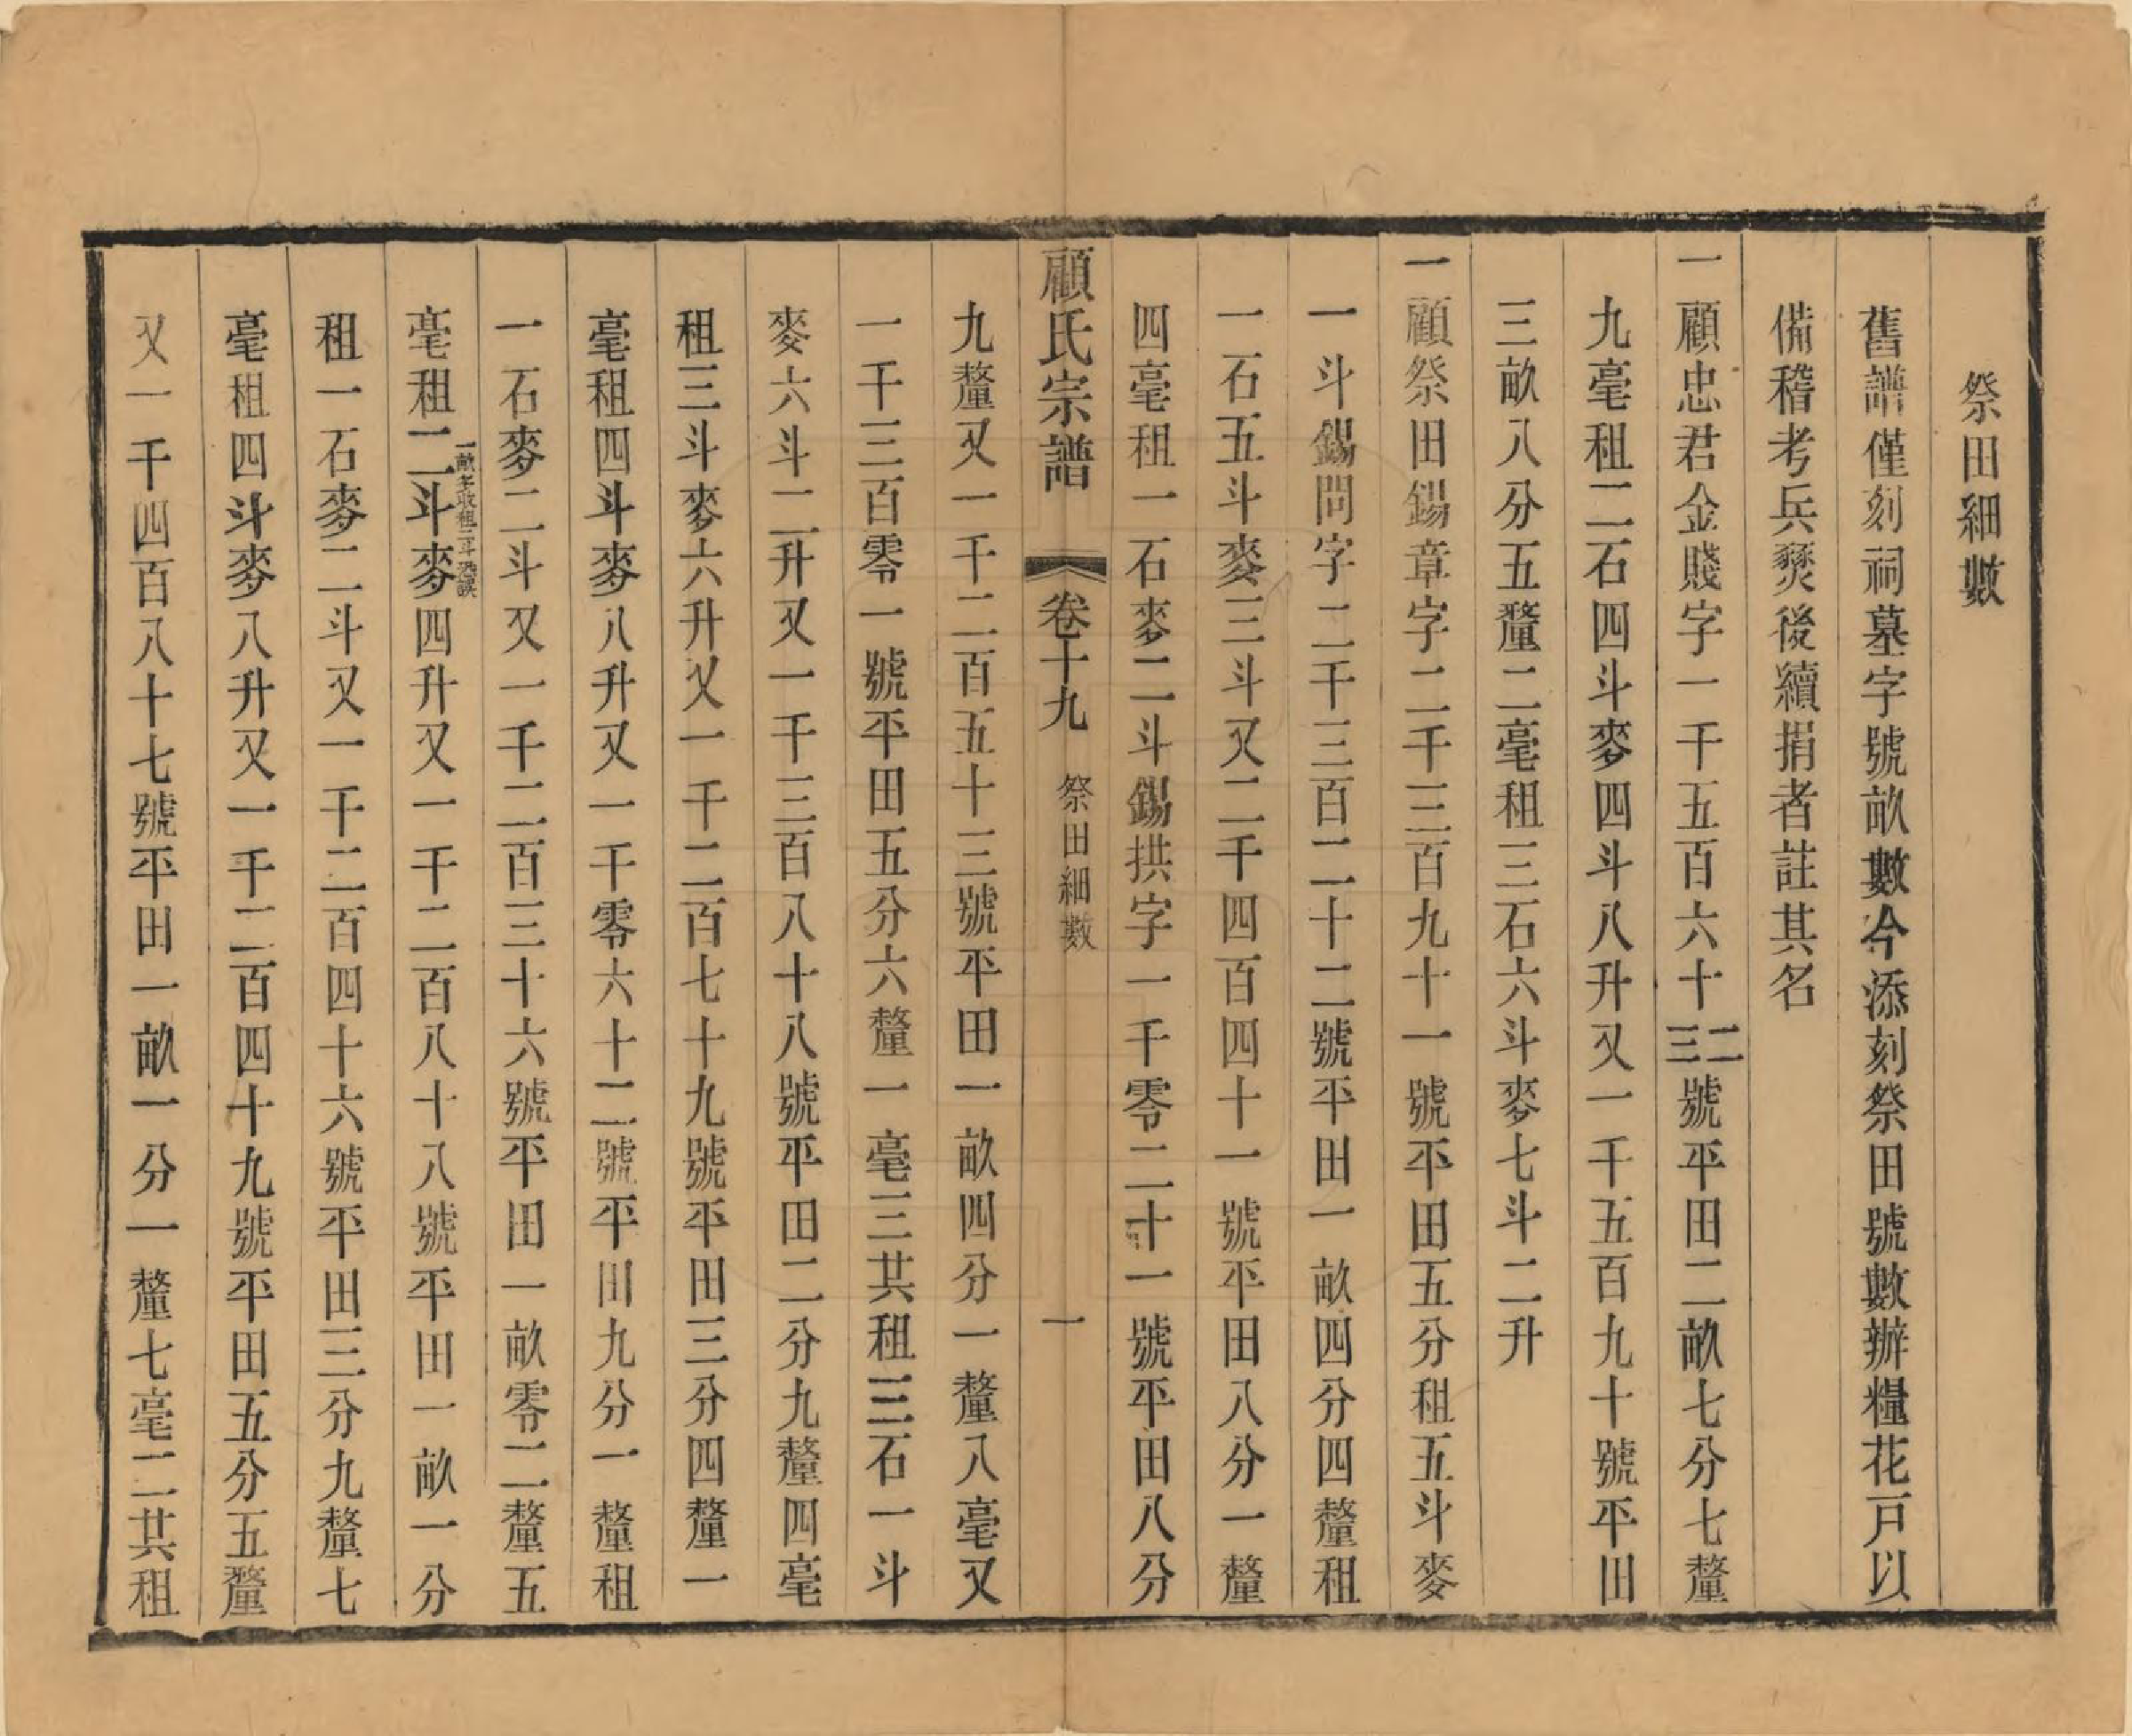 祭田細數
舊譜僅刻祠墓字號畝數今添刻祭田號數辦糧花戸以
備稽考兵燹後續捐者註其名
一顧忠君金賤字一千五百六十二三號平田二畝七分七釐
九毫租二石四斗麥四斗八升又一千五百九十號平田
三畝八分五釐二毫租三石六斗麥七斗二升
一顧祭田錫章字二千三百九十一號平田五分租五斗麥
一斗錫問字二千三百二十二號平田一畝四分四釐租
一石五斗麥三斗又二千四百四十一號平田八分一釐
四毫租一石麥二斗錫拱字一千零二十一號平田八分
顧氏宗譜 卷十九 祭田細數 一
九釐又一千二百五十三號平田一畝四分一釐八毫又
一千三百零一號平田五分六釐一毫三共租三石一斗
麥六斗二升又一千三百八十八號平田二分九釐四毫
租三斗麥六升又一千二百七十九號平田三分四釐一
毫租四斗麥八升又一千零六十二號平田九分一釐租
一石麥二斗又一千二百三十六號平田一畝零二釐五
毫租二斗麥四升又一千二百八十八號平田一畝一分
一畝年收租二斗恐誤
租一石麥二斗又一千二百四十六號平田三分九釐七
毫租四斗麥八升又一千二百四十九號平田五分五釐
又一千四百八十七號平田一畝一分一釐七毫二共租